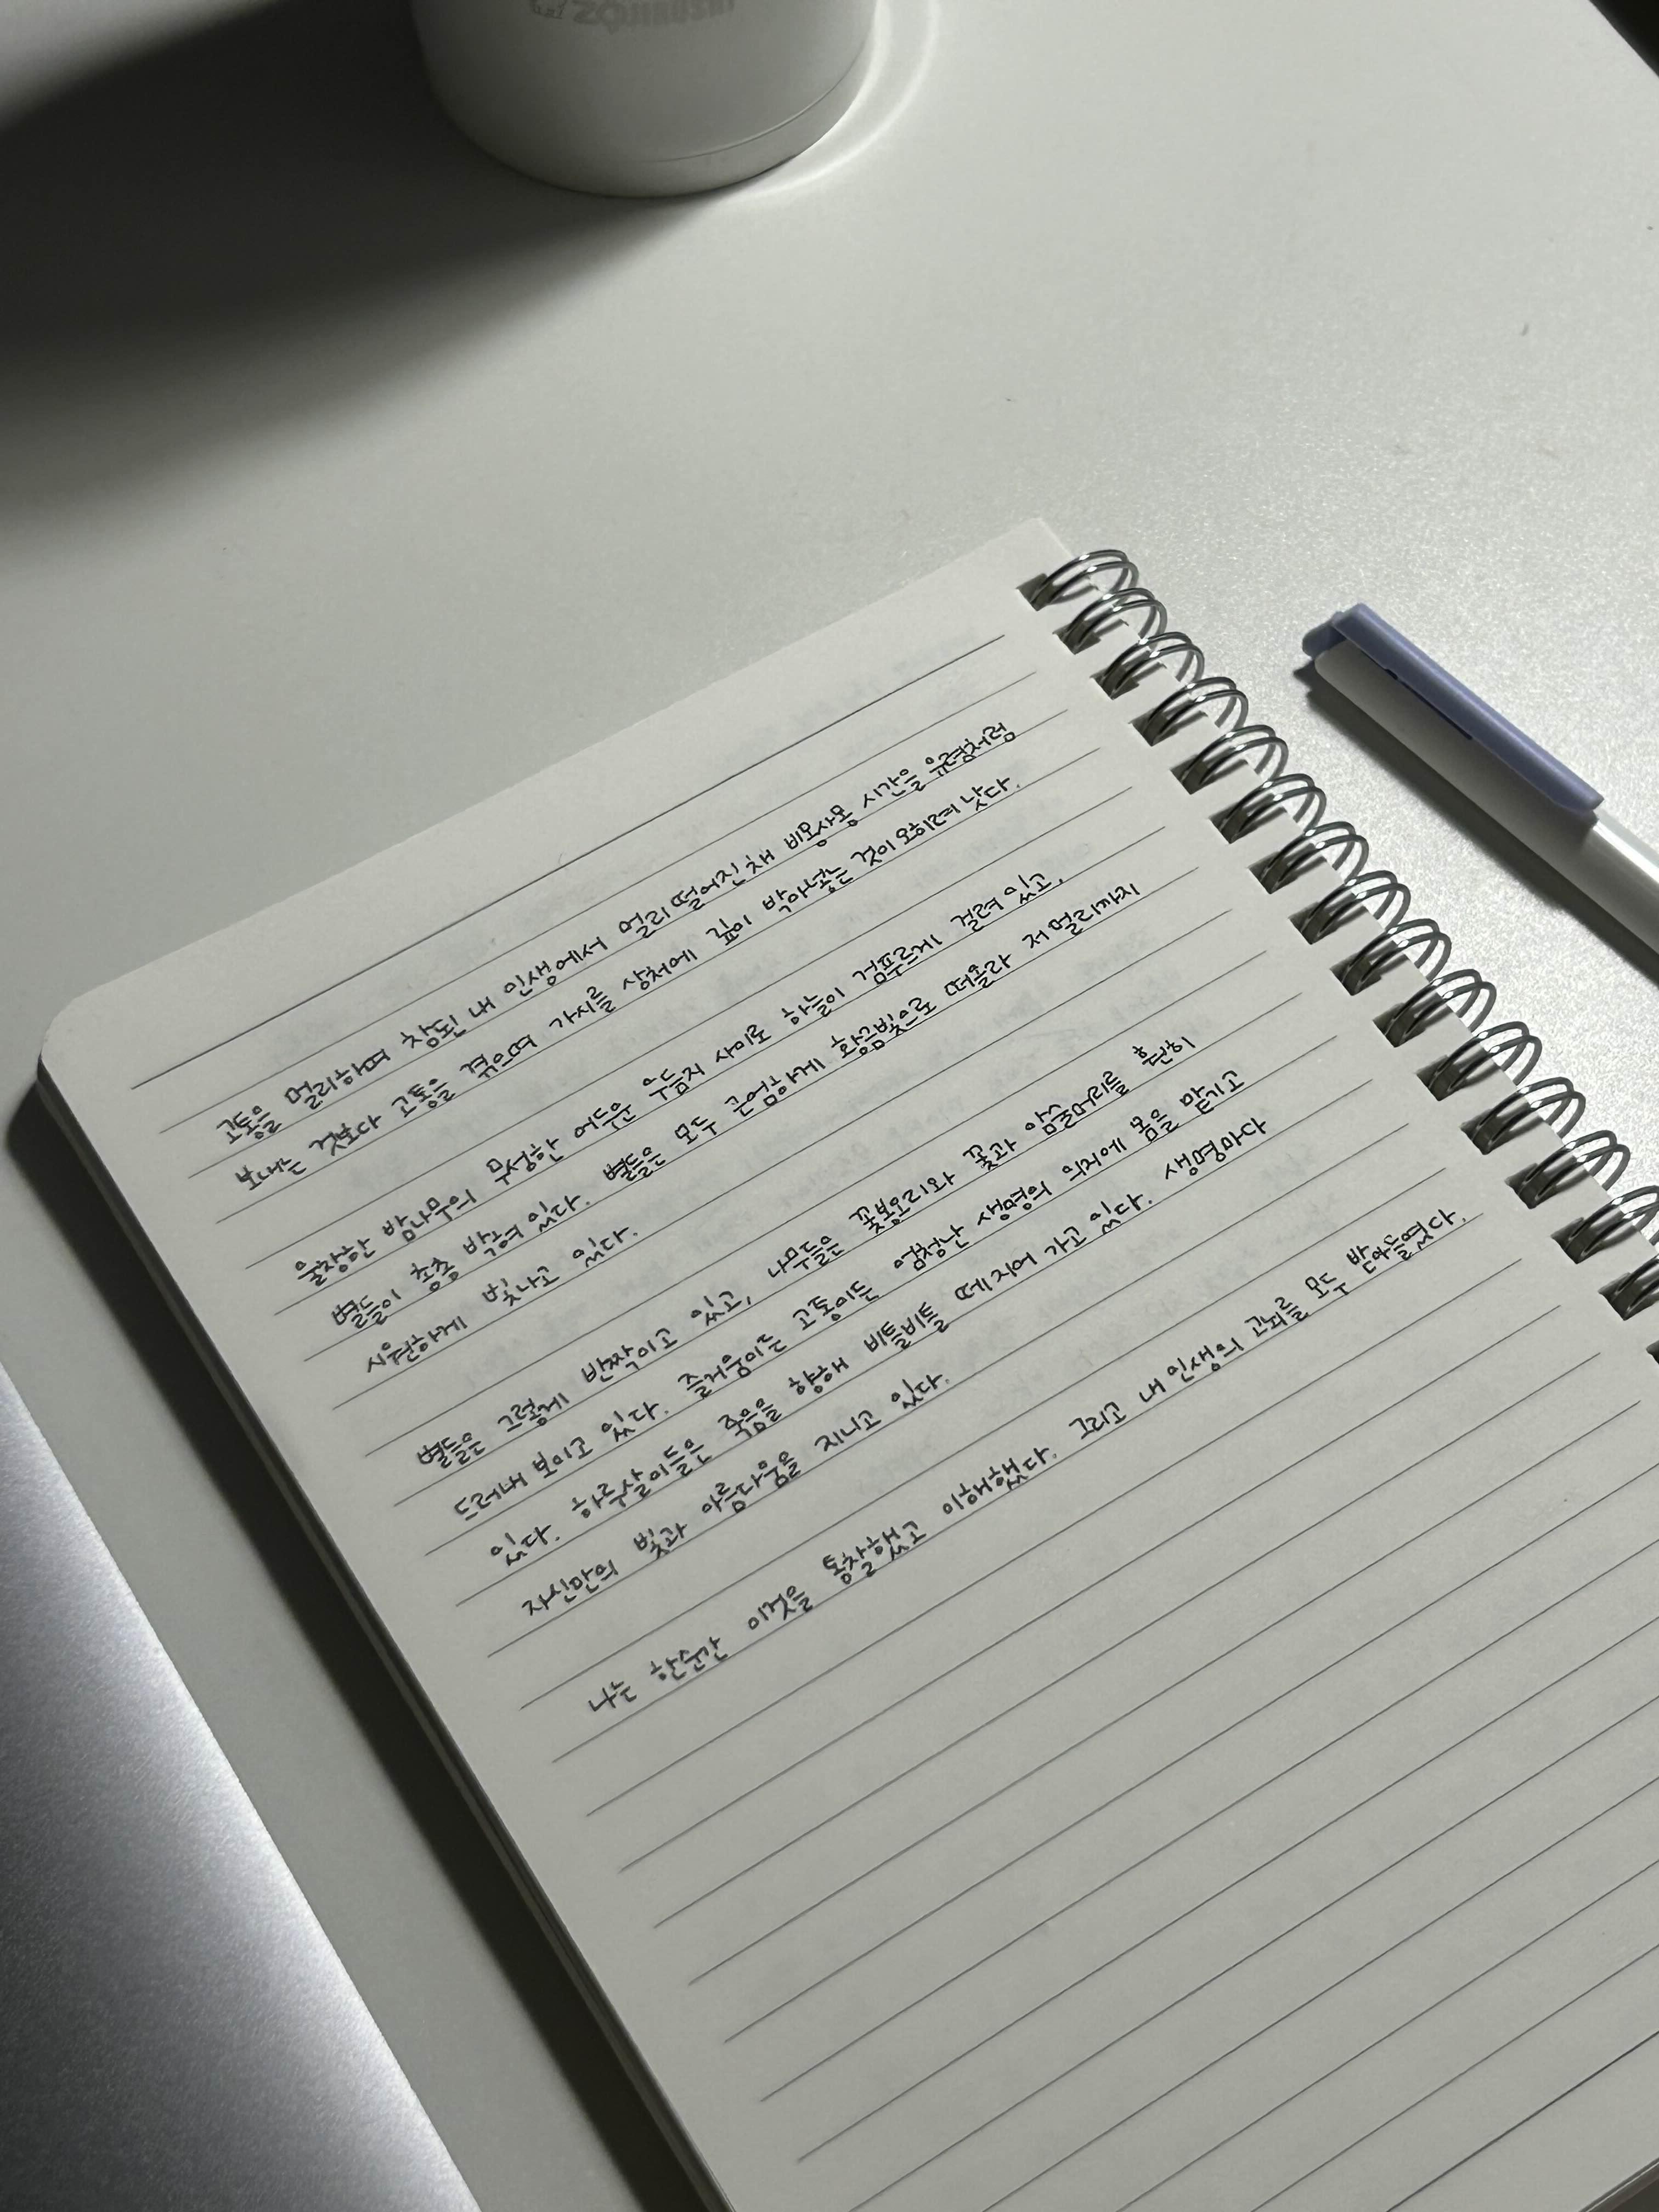 ZOJIRUSHI
고통을 멀리하며 참된 내 인생에서 멀리 떨어진 채 비몽사몽 시간을 유령처럼
보내는 것보다 고통을 겪으며 가시를 상처에 깊이 박아넣는 것이 오히려 낫다.
울창한 밤나무의 무성한 어두운 우듬지 사이로 하늘이 검푸르게 걸려 있고,
별들이 총총 박혀 있다. 별들은 모두 근엄하게 황금빛으로 떠올라 저 멀리까지
시원하게 빛나고 있다.
별들은 그렇게 반짝이고 있고, 나무들은 꽃봉오리와 꽃과 암술머리를 훤히
드러내 보이고 있다. 즐거움이든 고통이든 엄청난 생명의 의지에 몸을 맡기고
있다. 하루살이들은 죽음을 향해 비틀비틀 떼지어 가고 있다. 생명마다
자신만의 빛과 아름다움을 지니고 있다.
나는 한순간 이것을 통찰했고 이해했다. 그리고 내 인생의 고피를 모두 받아들였다.